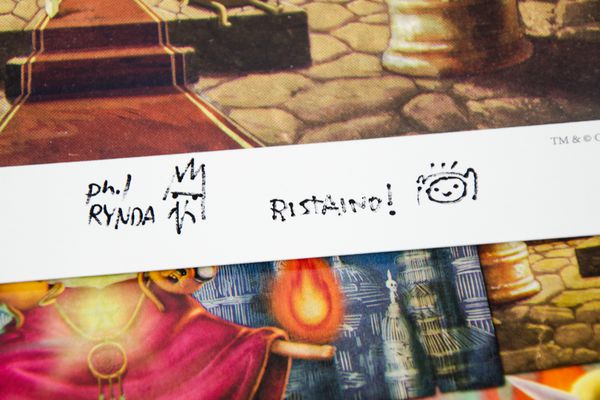 TM & ©
phil
RYNDA
RISTAINO!